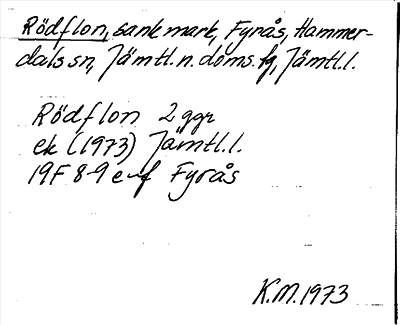 Rödflon, sank mark, Fyrås, Hammer-
dals sn, Jämtl. n. doms. fg, Jämtl. l.
Rödflon 2 ggr
ek (1973) Jämtl. l.
19F 8-9 e-f Fyrås
K.M. 1973